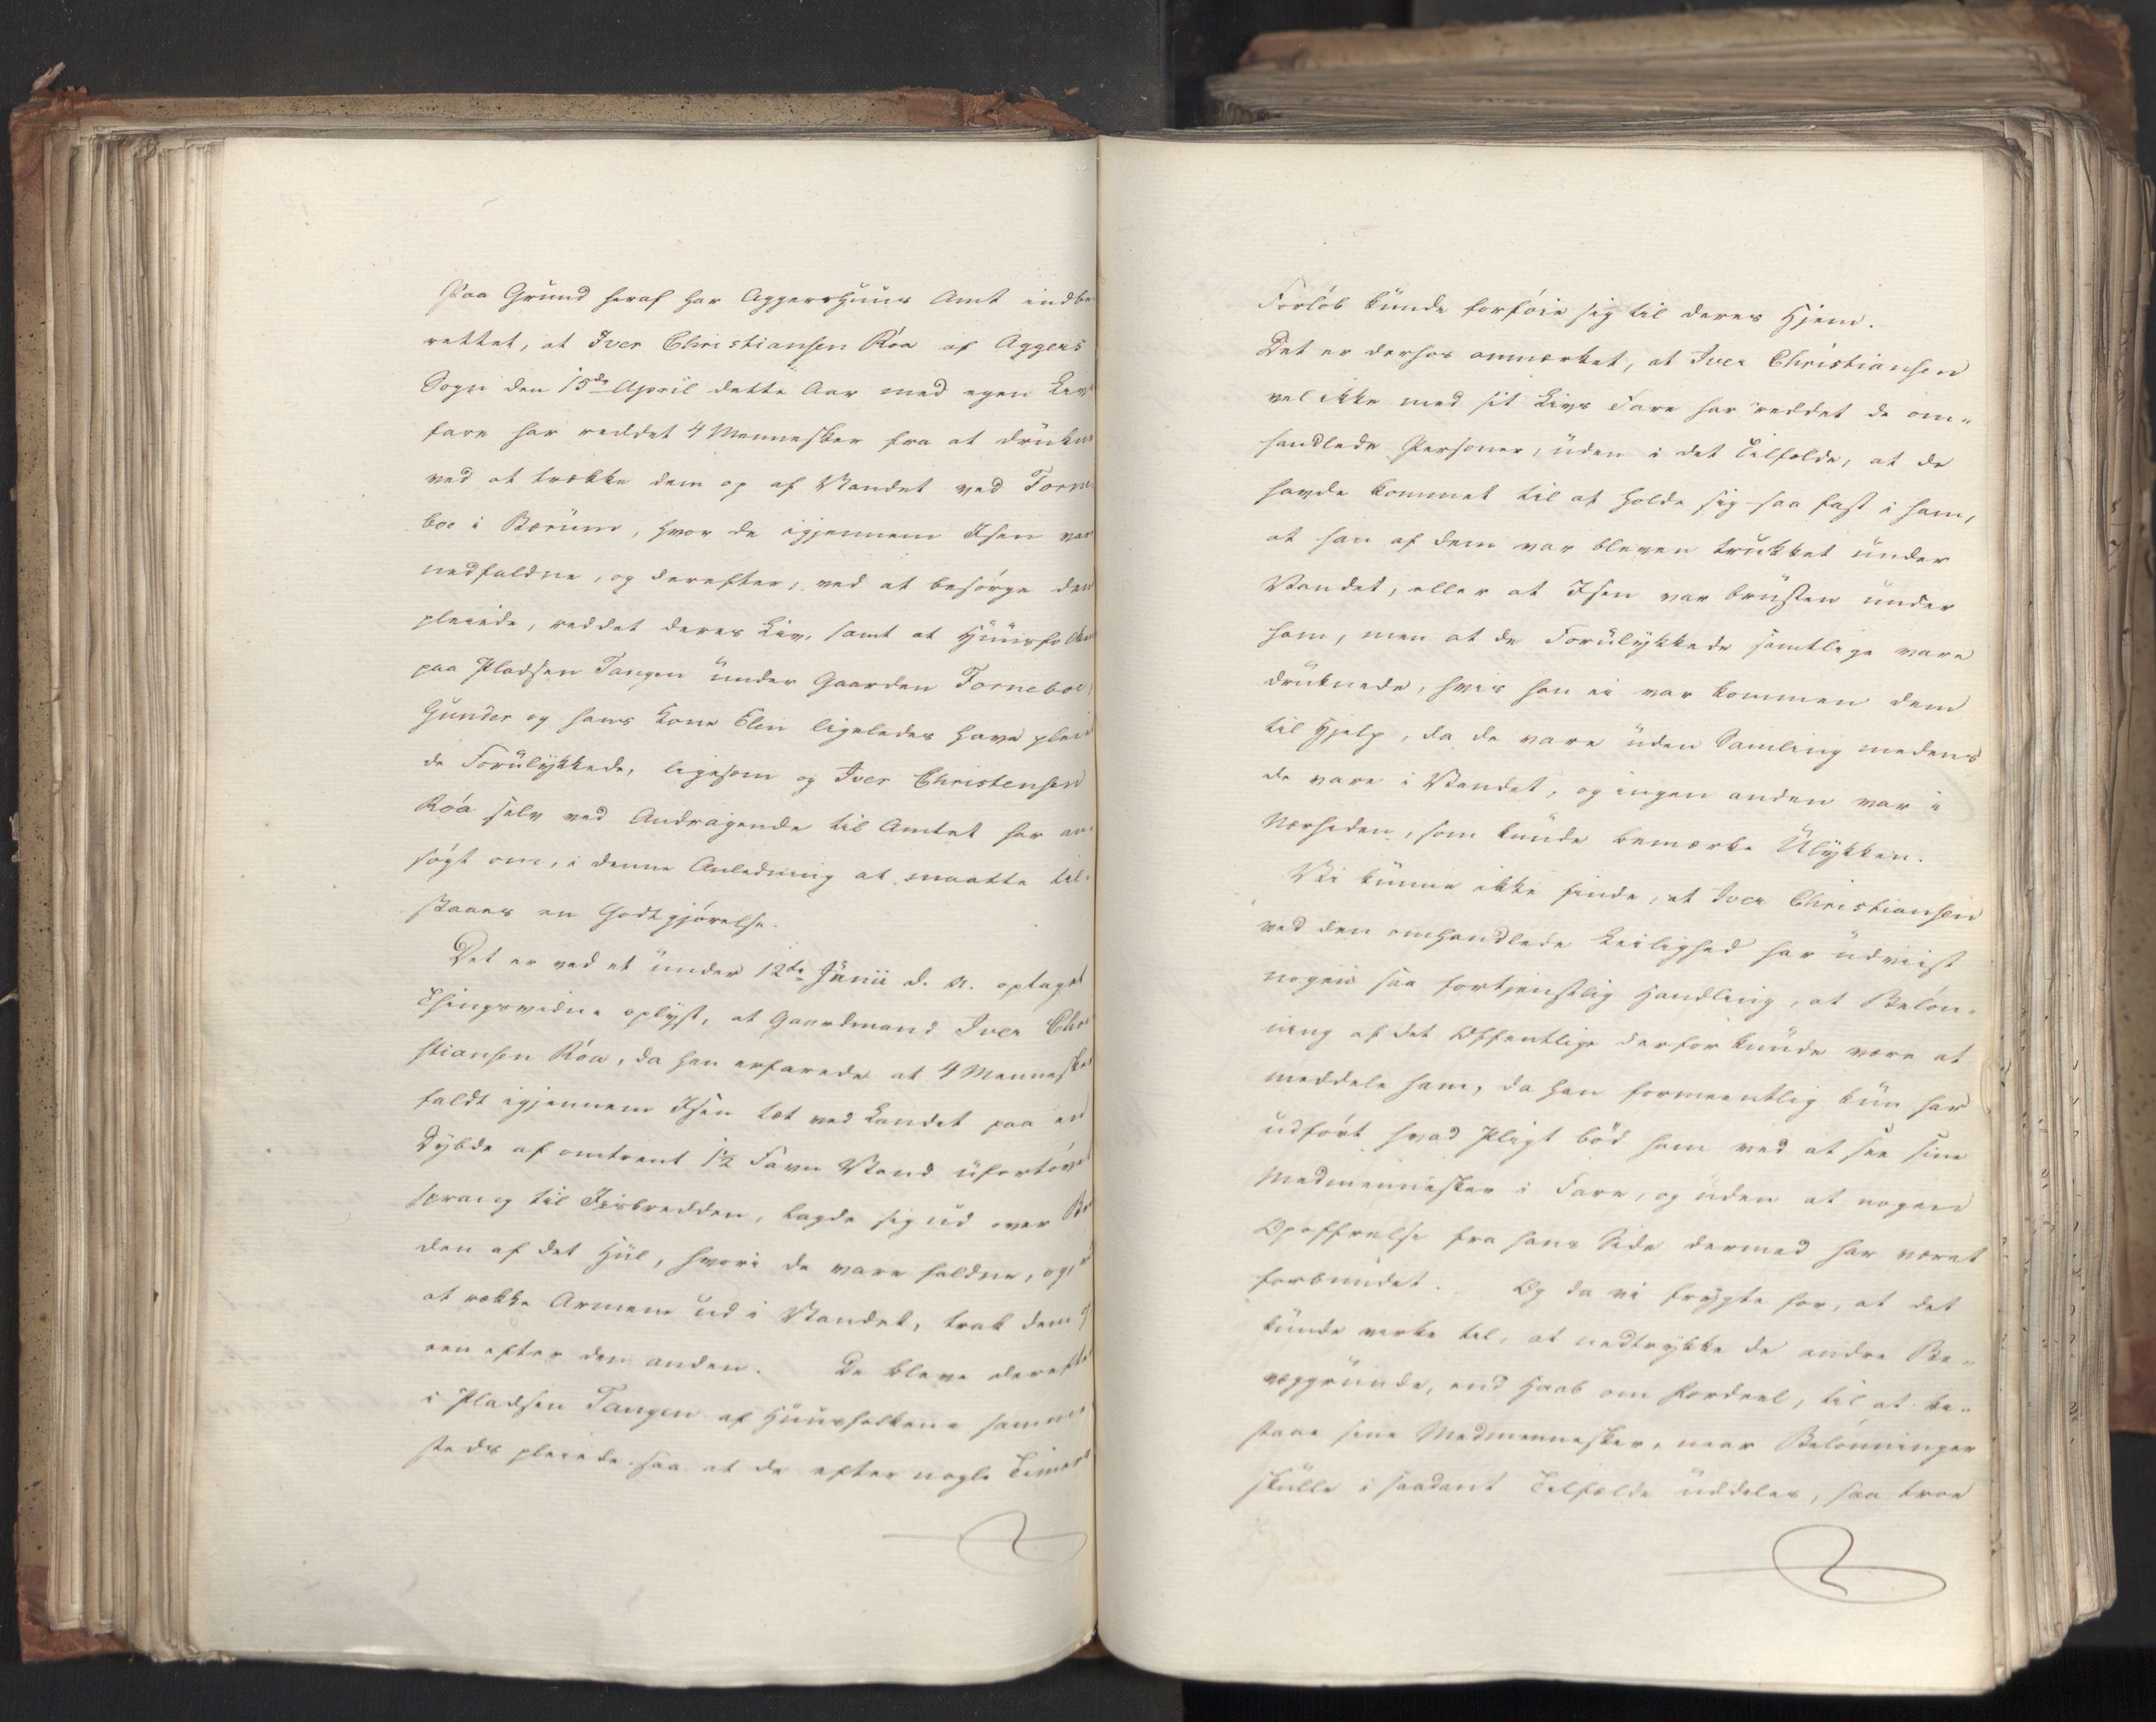 Paa Grund heraf har Aggershuus Amt indbe
rettet, at Iver Christiansen Röa af Aggers
Sogn den 15de April dette Aar med egen Livs
fare har reddet 4 Mennesker fra at drukne
ved at trække dem op af Vandet ved Torne
boe i Bærum, hvor de igjennem Isen var
nedfaldne, og derefter, ved at besörge dem
pleiede, reddet deres Liv, samt at Huusfolkene
paa Pladsen Tangen under Gaarden Torneboe,
Gunder og hans Kone Elen ligeledes have pleiet
de Forulykkede, ligesom og Iver Christensen
Röa selv ved Andragende til Amtet har an¬
sögt om, i denne Anledning at maatte til¬
staaes en Godtgjörelse.
Det er ved et under 12te Junii d. A. optaget
Thingsvidne oplyst, at Gaardmand Iver Chri
stiansen Röa, da han erfarede at 4 Mennesker
faldt igjennem Isen tæt ved Landet paa en
Dybde af omtrent 1½ Favn Vand ufortövet
sprang til Iisbredden, lagde sig ud over Bre
den af det Hul, hvori de vare faldne, og, ved
at række Armene ud i Vandet, trak dem op
een efter den anden. De bleve derefter
i Pladsen Tangen af Huusfolkene samme
steds pleiede saa at de efter nogle Timers
Forlöb kunde forföie sig til deres Hjem.
Det er derhos anmærket, at Iver Christiansen
vel ikke med sit Livs Fare har reddet de om¬
handlede Personer, uden i det Tilfælde, at de
havde kommet til at holde sig saa fast i ham,
at han af dem var bleven trukket under
Vandet, eller at Isen var brusten under
ham, men at de Forulykkede samtlige vare
druknede, hvis han ei var kommen dem
til Hjelp, da de vare uden Samling medens
de vare i Vandet, og ingen anden var i
Nærheden, som kunde bemærke Ulykken.
Vi kunne ikke finde, at Iver Christiansen
ved den omhandlede Leilighed har udviist
nogen saa fortjenstlig Handling, at Belön¬
ning af det Offentlige derfor kunde være at
meddele ham, da han formeentlig kun har
udfört hvad Pligt böd ham ved at see sine
Medmennesker i Fare, og uden at nogen
Opoffrelse fra hans Side dermed har været
forbundet. Og da vi frygte for, at det
kunde virke til, at nedtrykke de andre Be¬
væggrunde, end Haab om Fordeel, til at bi¬
staae sine Medmennesker, naar Belönninger
skulle i saadant Tilfælde uddeles, saa troe